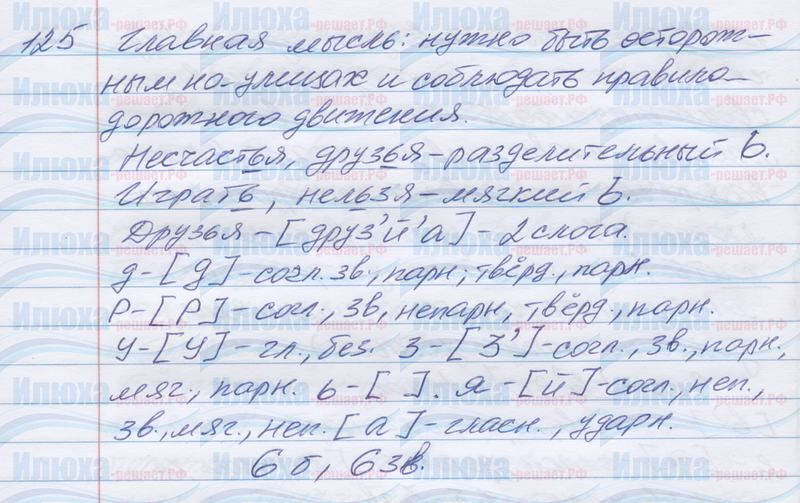 125 Главная мысль: нужно быть осторож-
ным на улицах и соблюдать правила
дорожного движения.
Несчастья, друзья - разделительный ь.
Играть, нельзя - мягкий ь.
Друзья - [друз'й'а] - 2 слога.
д - [д] - согл. зв., парн; твёрд., парн.
Р - [Р] - согл., зв, непарн, твёрд., парн.
У - [У] - гл., без. З - [З'] - согл., зв., парн,
мяг., парн. ь - [ ]. я - [й] - согл., неп.,
зв., мяг., неп. [а] - гласн., ударн.
6 б, 6 зв.
Илюха-решает.РФ